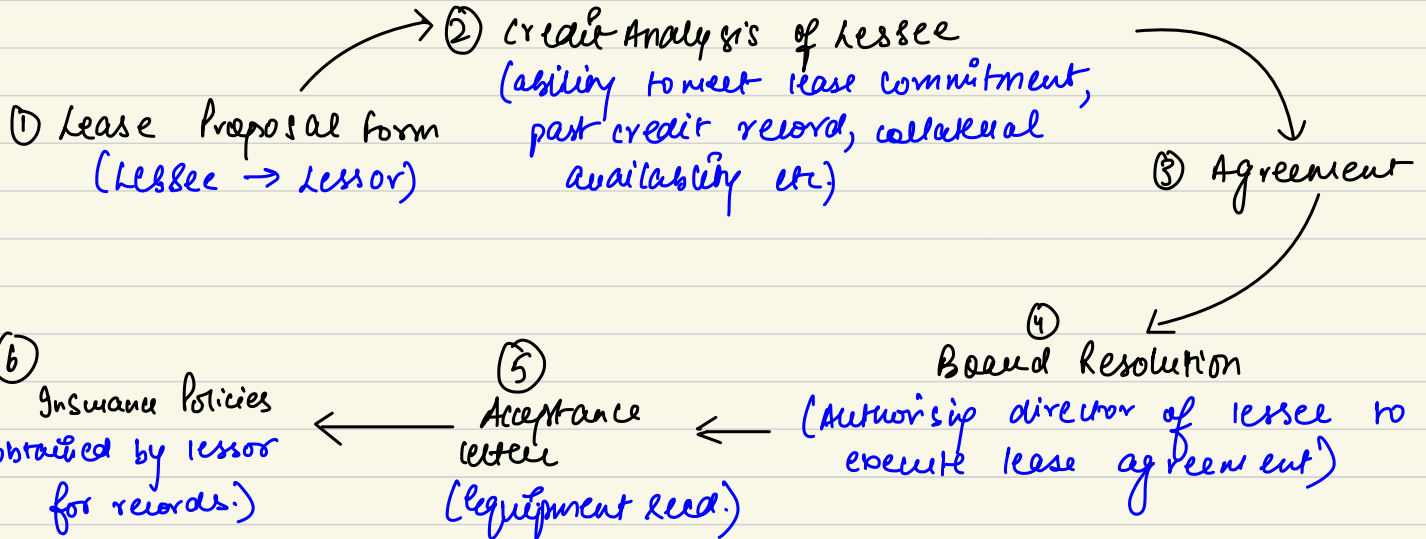 ① Lease Proposal Form
(Lessee → Lessor)
② Credit Analysis of Lessee
(ability to meet lease commitment,
past credit record, collateral
availability etc.)
③ Agreement
④
Board Resolution
(Authorising director of lessee to
execute lease agreement)
⑤
Acceptance
letter
(equipment recd.)
⑥
Insurance Policies
obtained by lessor
for records.)